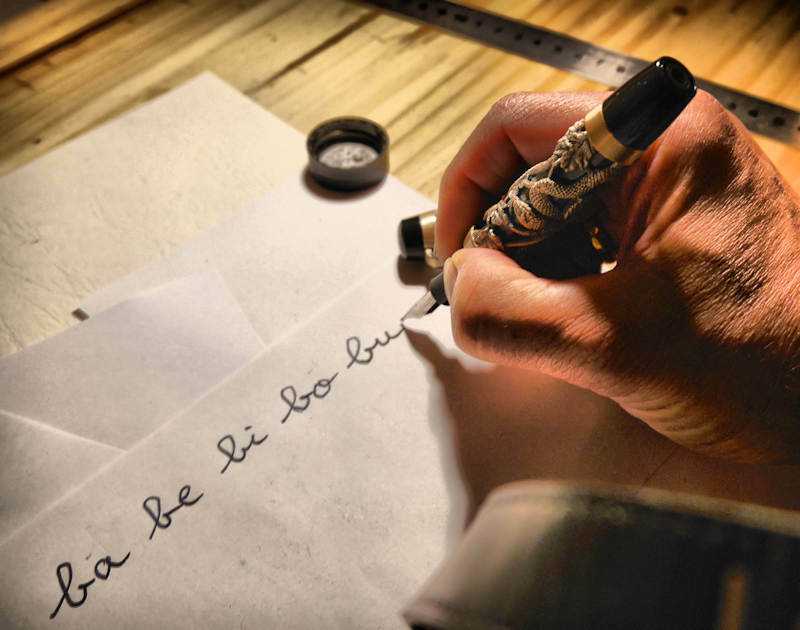 ba be bi bo bu